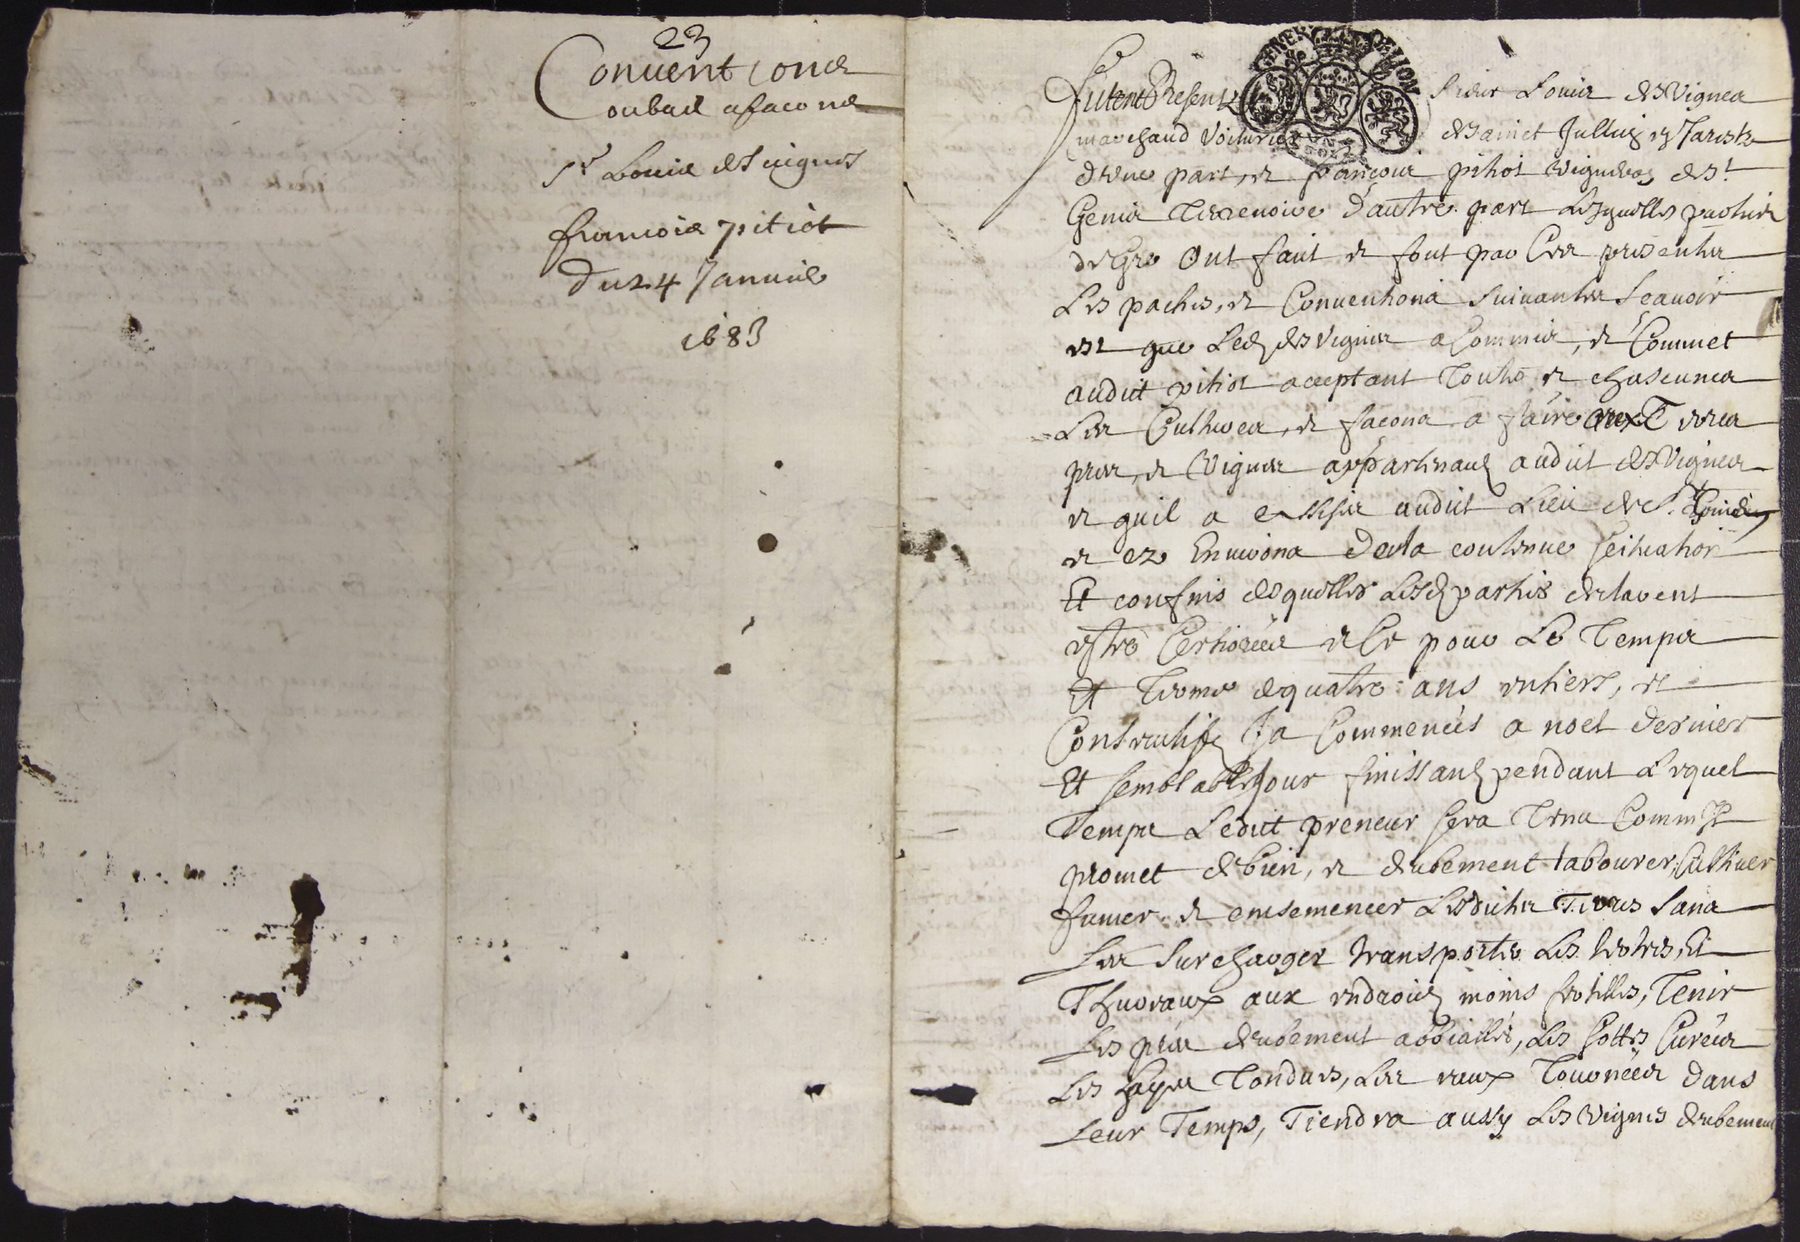 23
Conventions
ou bail a facons
Sr Louis desuignes
francois pitiot
du 24 Januier
1683
GENER LYON
furent Presents Sieur Louis desVignes
marchand Voiturier de sainct Jullin en Jarests
d'vne part, et francois pitiot vigneron de St
Genis Terrenoire d'autre part Lesquelles parties
de Gré Ont fait et font par Ces presentes
Les paches, et Conuentions suiuantes scauoir
est que Led desVignes a Commis, et Commet
audit pitiot aceptant toutes et chascunes
Les Cultures, et facons a faire aux Terres
prez, et Vignes appartenant audit desVignes
et quil a audit Lieu de St. Genis
et ez Enuirons de la contenue scituation
Et confins desquelles Lesd parties
estre Certiorées et Ce pour Le Temps
Et Terme de quatre ans entiers, et
Consecutifs Ja Commencés a noel dernier
Et semblable Jour finissant pendant Lequel
Temps Ledit preneur sera Tenu Comme Il
promet de bien, et deubement labourer, Cultiuer
fumer et ensemencer Lesdictes Terres sans
Les surcharger transporter Les terres, Et
Thuoraux aux endroits moins fertilles, Tenir
Les prez deubement abbialles, Les Curées
Les hayes Tondues, Les eaux Tournées dans
Leur Temps, Tiendra aussy Les Vignes deubement